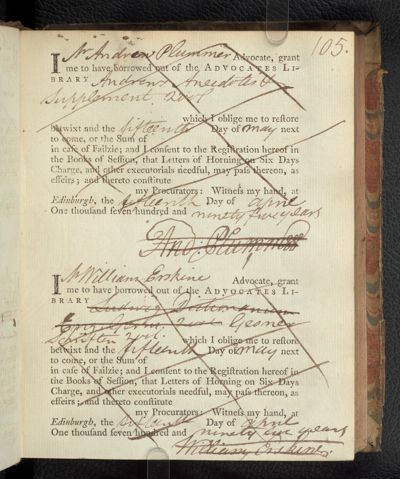 105.
I Mr Andrew Plummer Advocate, grant
me to have borrowed out of the ADVOCATES LI-
BRARY Andrews Anecdotes &
Supplement. 2 voll
which I oblige me to restore
betwixt and the fifteenth Day of may next
to come, or the Sum of
in case of Failzie; and I consent to the Registration hereof in
the Books of Session, that Letters of Horning on Six Days
Charge, and other executorials needful, may pass thereon, as
effeirs; and thereto constitute
my Procurators: Witness my hand, at
Edinburgh, the fifteenth Day of april
One thousand seven hundred and ninety five years
And: Plummer
I Mr William Erskine Advocate, grant
me to have borrowed out of the ADVOCATES LI-
BRARY
2 voll Gesner
Schriften 2 vol. which I oblige me to restore
betwixt and the fifteenth Day of may next
to come, or the Sum of
in case of Failzie; and I consent to the Registration hereof in
the Books of Session, that Letters of Horning on Six Days
Charge, and other executorials needful, may pass thereon, as
effeirs; and thereto constitute
my Procurators: Witness my hand, at
Edinburgh, the fifteenth Day of april
One thousand seven hundred and ninety five years
William Erskine.